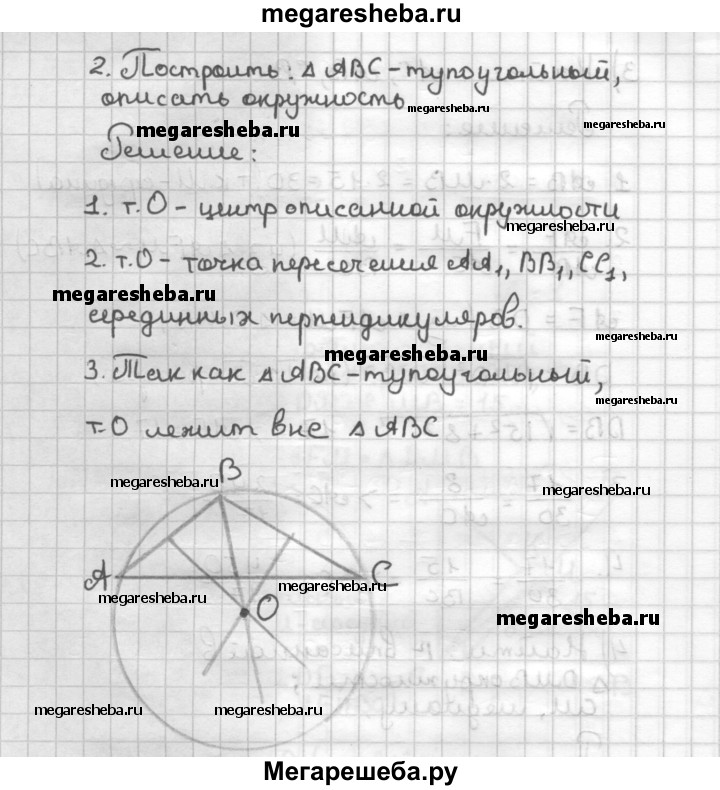 megaresheba.ru
2. Построить: Δ ABC - тупоугольный,
описать окружность
megaresheba.ru
megaresheba.ru
megaresheba.ru
Решение:
1. т. O - центр описанной окружности
megaresheba.ru
2. т. O - точка пересечения AA₁, BB₁, CC₁,
megaresheba.ru
серединных перпендикуляров.
megaresheba.ru
megaresheba.ru
3. Так как Δ ABC - тупоугольный,
megaresheba.ru
т. O лежит вне Δ ABC
B
megaresheba.ru
megaresheba.ru
A
C
megaresheba.ru
megaresheba.ru
O
megaresheba.ru
megaresheba.ru
megaresheba.ru
Мегарешеба.ру